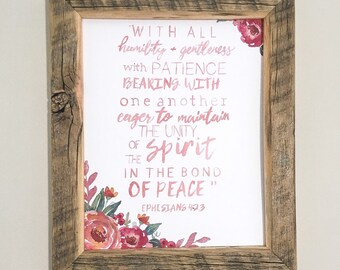 "WITH ALL
humility + gentleness
with PATIENCE
BEARING WITH
one another
eager to maintain
THE UNITY
OF THE Spirit
IN THE BOND
OF PEACE"
EPHESIANS 4:2-3